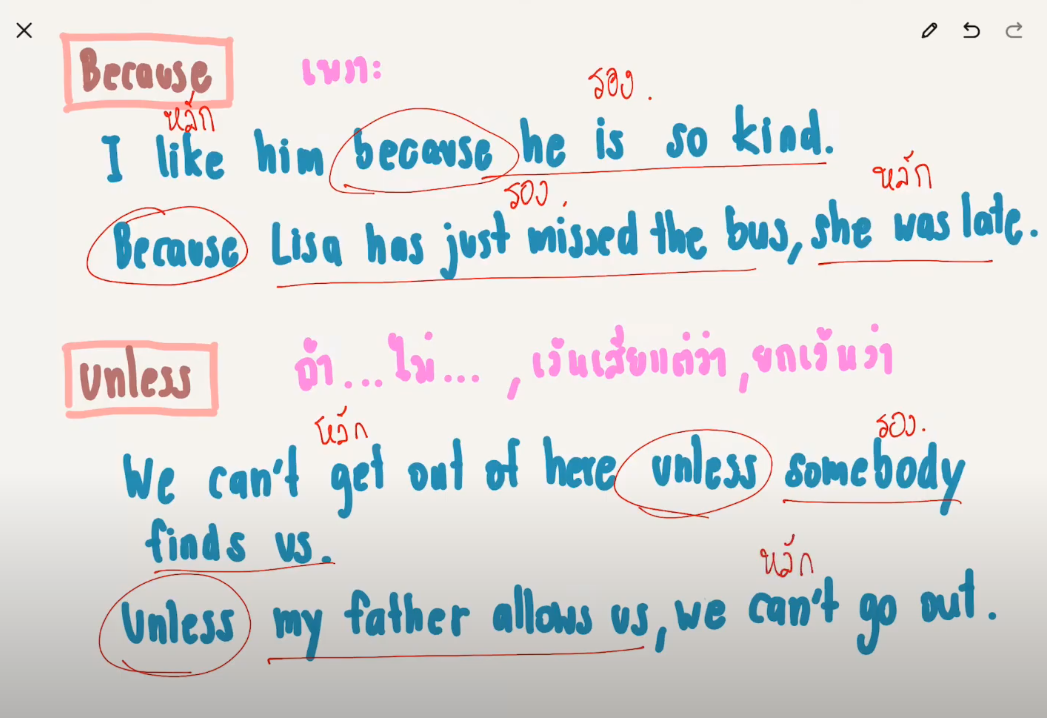 Because เพราะ
รอง.
หลัก
I like him because he is so kind.
รอง. หลัก
Because Lisa has just missed the bus, she was late.
unless ถ้า...ไม่... , เว้นเสียแต่ว่า, ยกเว้นว่า
หลัก รอง.
We can't get out of here unless somebody
finds us.
หลัก
Unless my father allows us, we can't go out.